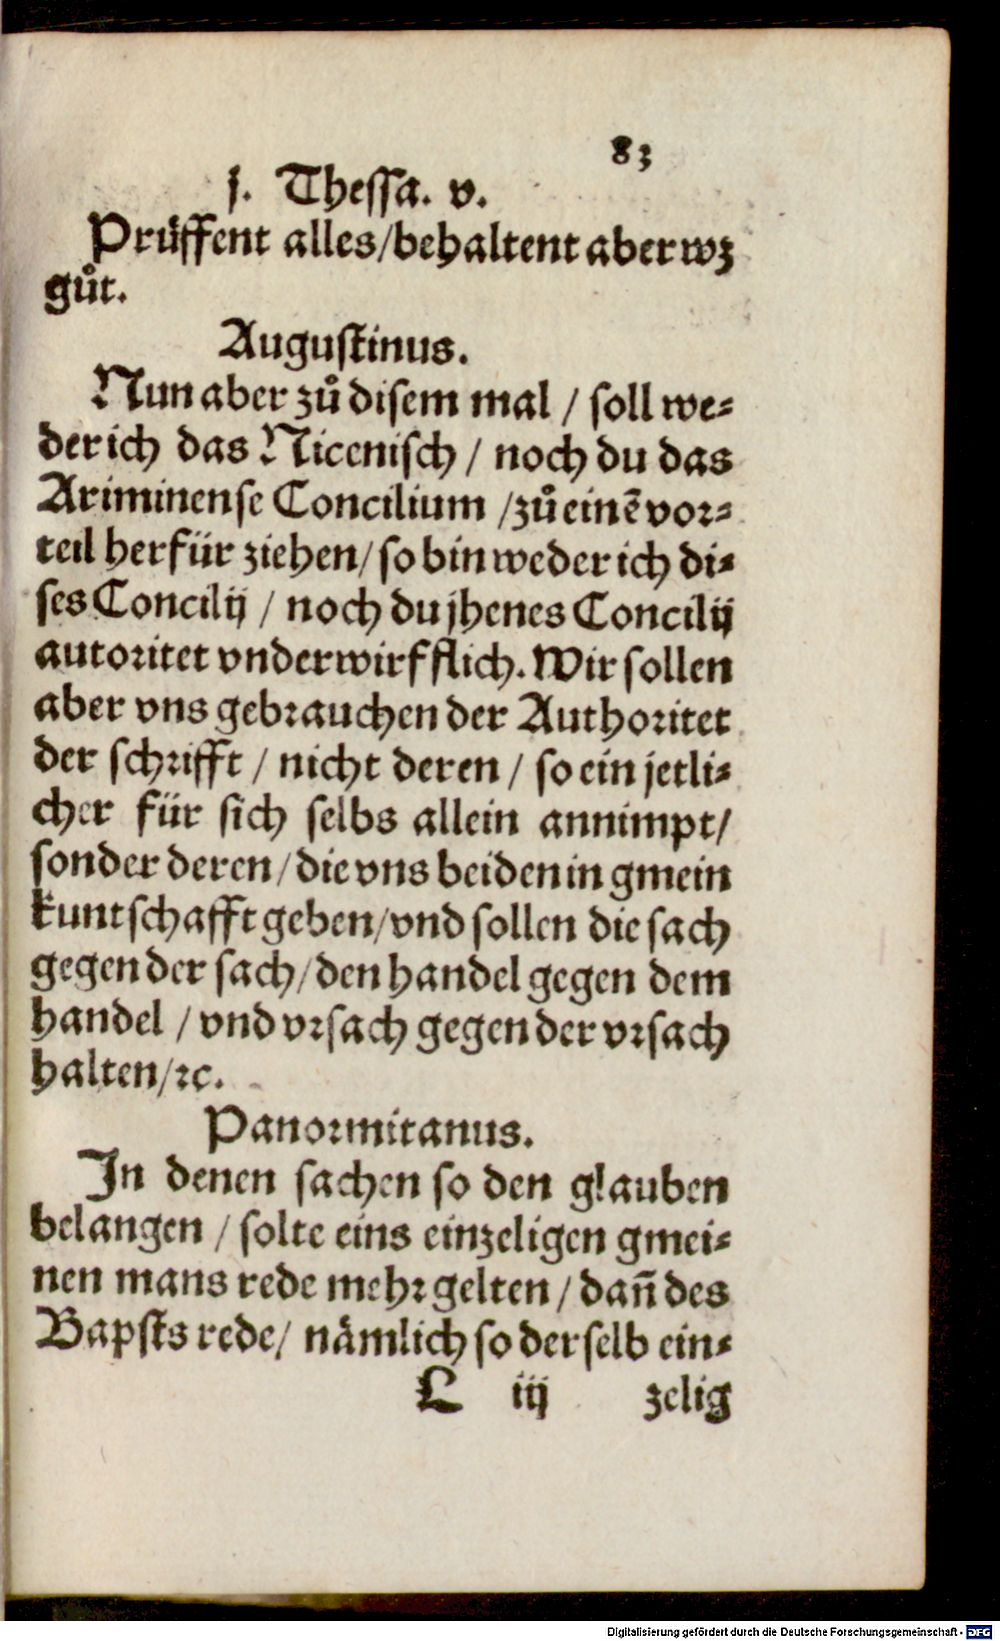 83
j. Thessa. v.
Pruͤffent alles/behaltent aber wz
guͦt.
Augustinus.
Nun aber zuͦ disem mal / soll we⸗
der ich das Nicenisch / noch du das
Ariminense Concilium /zuͦ einẽ vor⸗
teil herfür ziehen/ so bin weder ich di⸗
ses Concilij / noch du jhenes Concilij
autoritet vnderwirfflich. Wir sollen
aber vns gebrauchen der Authoritet
der schrifft / nicht deren / so ein jetli⸗
cher für sich selbs allein annimpt/
sonder deren/die vns beiden in gmein
kuntschafft geben/vnd sollen die sach
gegen der sach/den handel gegen dem
handel / vnd vrsach gegen der vrsach
halten/ꝛc.
Panormitanus.
In denen sachen so den glauben
belangen / solte eins einzeligen gmei⸗
nen mans rede mehr gelten / dañ des
Bapsts rede/ nämlich so derselb ein⸗
L iij zelig
Digitalisierung gefördert durch die Deutsche Forschungsgemeinschaft - DFG